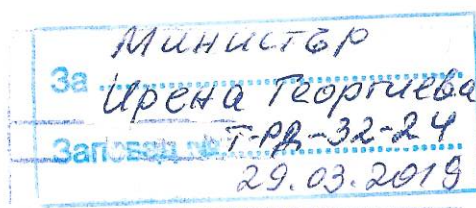 Министър
За Ирена Георгиева
Заповед № Т-РД-32-24
29.03.2019